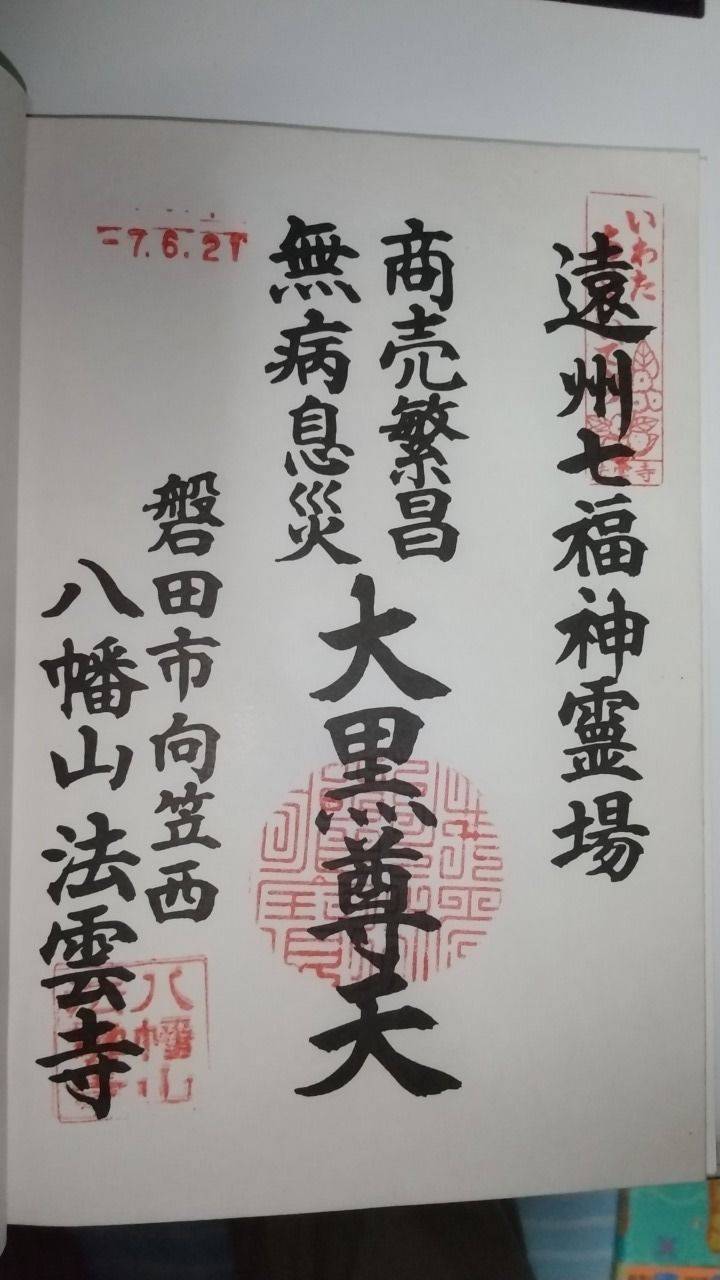 いわた
遠州七福神霊場
商売繁昌
無病息災
大黒尊天
磐田市向笠西
八幡山法雲寺
八幡山
7.6.21